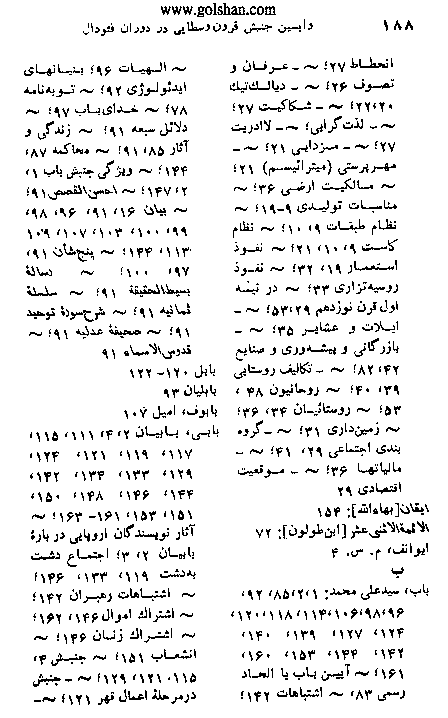 www.golshan.com
۱۸۸ واپسین جنبش قرون وسطایی در دوران فئودال
انحطاط ۲۷؛ ~ ـ عرفان و
تصوف ۲۶؛ ~ ـ دیالک‌تیک
۲۰،۲۲؛ ~ ـ شکاکیت ۲۷؛
~ ـ لذت‌گرایی؛ ~ ـ لاادریت
۲۷؛ ~ ـ مزدایی ۲۱؛ ~ ـ
مهرپرستی (میترائیسم) ۲۱؛
~ ـ مالکیت ارضی ۳۶؛ ~
مناسبات تولیدی ۹-۱۹؛ ~
نظام طبقات ۹، ۱۰؛ ~ نظام
کاست ۹، ۱۰، ۲۱؛ ~ نفوذ
استعمار ۱۹، ۳۲؛ ~ نفوذ
روسیه‌تزاری ۳۳؛ ~ در نیمه
اول قرن نوزدهم ۲۹؛۵۳؛ ~ ـ
ایلات و عشایر ۳۵؛ ~ ـ
بازرگانی و پیشه‌وری و صنایع
۴۲؛ ۸۲؛ ~ ـ تکالیف روستایی
۳۹، ۴۰؛ ~ روحانیون ۴۸،
۵۳؛ ~ روستائیان ۳۴، ۳۶؛
~ زمین‌داری ۳۱؛ ~ ـ گروه
بندی اجتماعی ۲۹، ۴۱؛ ~ ـ
مالیاتها ۳۶؛ ~ ـ موقعیت
اقتصادی ۲۹
ایقان[بهاءالله]: ۱۵۴
الائمةالاثنی‌عشر [ابن‌طولون]: ۷۲
ایوانف، م. س. ۴
ب
باب، سیدعلی محمد: ۲۰۱، ۸۵، ۹۲،
۹۶،۹۸،۱۰۶،۱۱۴،۱۱۸،۱۲۰،
۱۲۴، ۱۲۷، ۱۳۹، ۱۴۰،
۱۴۲، ۱۴۴، ۱۵۳، ۱۶۰،
۱۶۱؛ ~ آیین باب یا الحاد
رسمی ۸۳، ~ اشتباهات ۱۴۲؛
~ ـ الهیات ۹۶؛ بنیانهای
ایدئولوژی ۹۲؛ ~ توبه‌نامه
۷۸؛ ~ خدای‌باب ۹۷؛ ~
دلائل سبعه ۹۱؛ ~ زندگی و
آثار ۸۵، ۹۱؛ ~ محاکمه ۸۷،
۱۴۴؛ ~ ویژگی جنبش باب ۱،
۲، ۱۴۷؛ ~ احسن‌القصص ۹۱؛
~ بیان ۱۶، ۹۱، ۹۶، ۹۸،
۹۹، ۱۰۰، ۱۰۳، ۱۰۷، ۱۰۹
۱۱۳، ۱۴۴؛ ~ پنج‌شأن ۹۱،
۹۷، ۱۰۰؛ ~ رسالهٔ
بسیط‌الحقیقة ۹۱؛ ~ سلسلهٔ
ثمانیه ۹۱؛ ~ شرح‌سورهٔ توحید
۹۱؛ ~ صحیفهٔ عدلیه ۹۱؛ ~
قدوس‌الاسماء ۹۱
بابل ۱۲۰-۱۲۲
بابلیان ۹۳
بابوف، امیل ۱۰۷
بابی، بابیان ۲، ۴، ۱۱۱، ۱۱۵،
۱۱۷، ۱۱۹، ۱۲۱، ۱۲۴،
۱۲۹، ۱۳۳، ۱۳۴، ۱۴۲،
۱۴۴، ۱۴۶، ۱۴۸، ۱۵۰،
۱۵۱، ۱۵۳، ۱۶۱-۱۶۳؛ ~
آثار نویسندگان اروپایی در بارهٔ
بابیان ۲، ۳؛ اجتماع دشت
به‌دشت ۱۱۹، ۱۳۳، ۱۴۶؛
~ اشتباهات رهبران ۱۴۲؛
~ اشتراک اموال ۱۴۶، ۱۶۲؛
~ اشتراک زنان ۱۴۶؛ ~
انشعاب ۱۵۱؛ ~ جنبش ۴،
۱۱۵، ۱۲۱، ۱۲۹؛ ~ ـ جنبش
درمرحلهٔ اعمال قهر ۱۲۱؛ ~ ـ